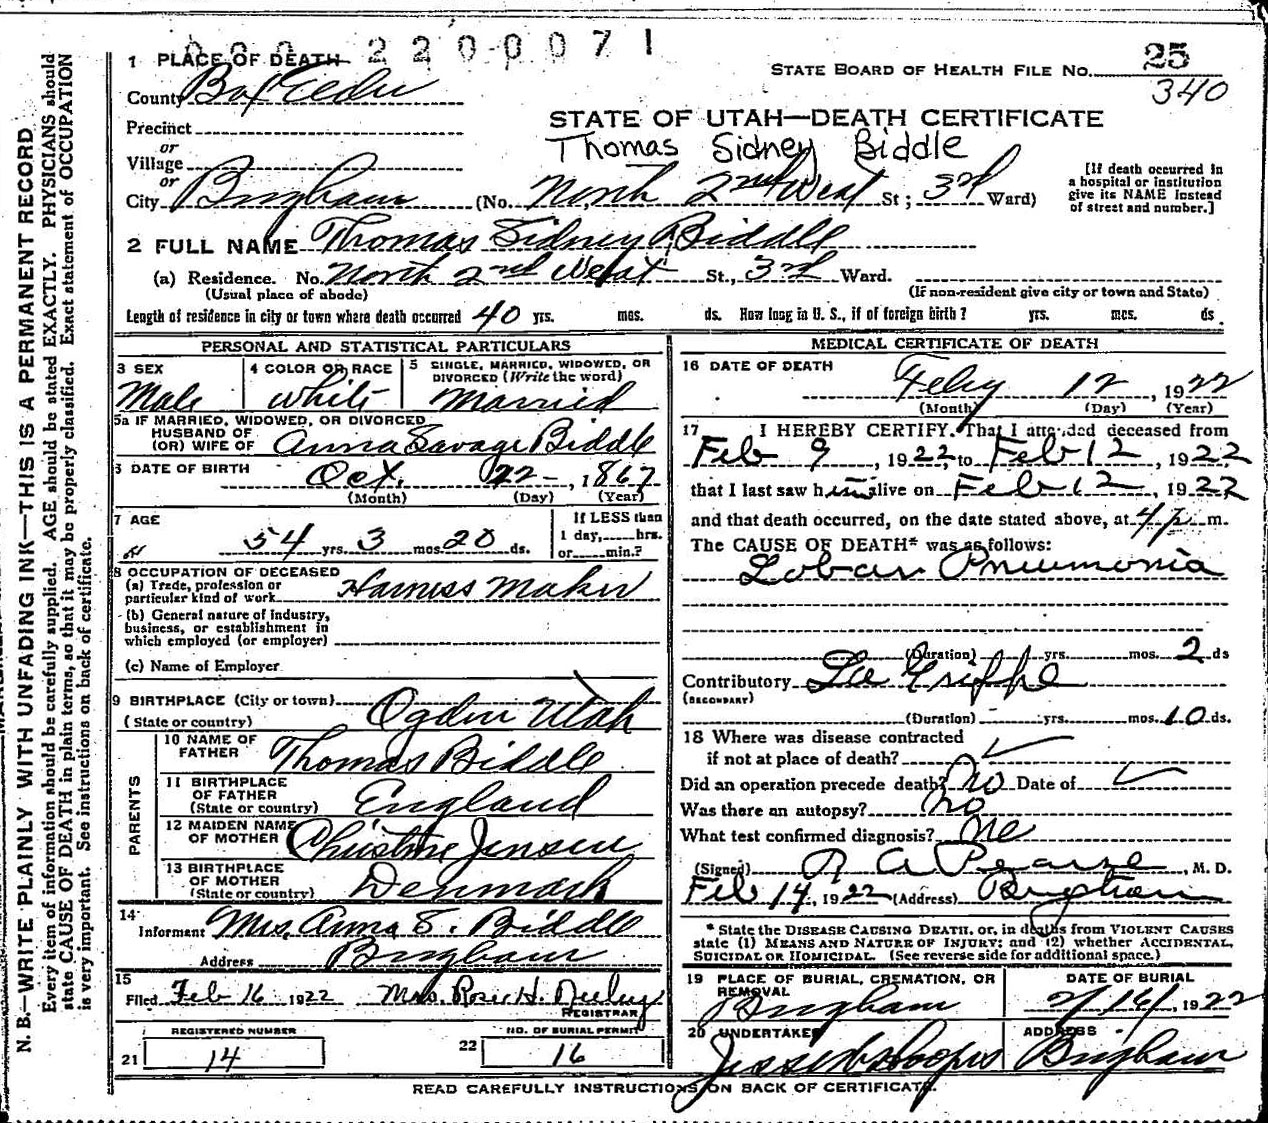 2200071
1 PLACE OF DEATH
STATE BOARD OF HEALTH FILE No. 25
340
County Box Elder
STATE OF UTAH—DEATH CERTIFICATE
Precinct
Thomas Sidney Biddle
or
Village
or
City Brigham (No. North 2nd West St; 3rd Ward)
[If death occurred in a hospital or institution give its NAME instead of street and number.]
2 FULL NAME Thomas Sidney Biddle
(a) Residence. No. North 2nd West St., 3rd Ward.
(Usual place of abode) (If non-resident give city or town and State)
Length of residence in city or town where death occurred 40 yrs. mos. ds. How long in U. S., if of foreign birth? yrs. mos. ds.
PERSONAL AND STATISTICAL PARTICULARS
3 SEX Male
4 COLOR OR RACE white
5 SINGLE, MARRIED, WIDOWED, OR DIVORCED (Write the word) Married
5a IF MARRIED, WIDOWED, OR DIVORCED
HUSBAND OF
(OR) WIFE OF Anna Savage Biddle
6 DATE OF BIRTH Oct. 22 - , 1867
(Month) (Day) (Year)
7 AGE
54 yrs. 3 mos. 20 ds.
If LESS than
1 day, hrs.
or min.?
8 OCCUPATION OF DECEASED
(a) Trade, profession or
particular kind of work Harness Maker
(b) General nature of industry,
business, or establishment in
which employed (or employer)
(c) Name of Employer
9 BIRTHPLACE (City or town)
(State or country) Ogden Utah
PARENTS
10 NAME OF
FATHER Thomas Biddle
11 BIRTHPLACE
OF FATHER
(State or country) England
12 MAIDEN NAME
OF MOTHER Christine Jensen
13 BIRTHPLACE
OF MOTHER
(State or country) Denmark
14
Informant Mrs. Anna S. Biddle
Address Brigham
15
Filed Feb 16 1922 Mrs. Rose H. Neeley
REGISTRAR
REGISTERED NUMBER
21 14
NO. OF BURIAL PERMIT
22 16
MEDICAL CERTIFICATE OF DEATH
16 DATE OF DEATH
Feby 12, 1922
(Month) (Day) (Year)
17 I HEREBY CERTIFY, That I attended deceased from
Feb 9, 1922, to Feb 12, 1922
that I last saw him alive on Feb 12, 1922
and that death occurred, on the date stated above, at 4 p. m.
The CAUSE OF DEATH* was as follows:
Lobar Pneumonia
(Duration) yrs. mos. 2 ds
Contributory La Grippe
(SECONDARY)
(Duration) yrs. mos. 10 ds.
18 Where was disease contracted
if not at place of death?
Did an operation precede death? No Date of
Was there an autopsy? No
What test confirmed diagnosis?
(Signed) R A Pearse, M. D.
Feb 14, 1922 (Address) Brigham
* State the DISEASE CAUSING DEATH, or, in deaths from VIOLENT CAUSES
state (1) MEANS AND NATURE OF INJURY; and (2) whether ACCIDENTAL,
SUICIDAL OR HOMICIDAL. (See reverse side for additional space.)
19 PLACE OF BURIAL, CREMATION, OR
REMOVAL
Brigham
DATE OF BURIAL
2/16/, 1922
20 UNDERTAKER
ADDRESS
Brigham
READ CAREFULLY INSTRUCTIONS ON BACK OF CERTIFICATE.
N. B.—WRITE PLAINLY WITH UNFADING INK—THIS IS A PERMANENT RECORD
Every item of information should be carefully supplied. AGE should be stated EXACTLY. PHYSICIANS should
state CAUSE OF DEATH in plain terms, so that it may be properly classified. Exact statement of OCCUPATION
is very important. See instructions on back of certificate.